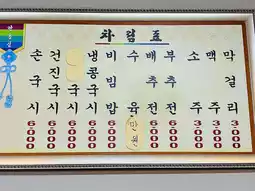 차림표
손국시 6000
건진국시 6000
국시 6000
냉콩국시 6000
비빔밥 6000
수육 만원
배추전 6000
부추전 6000
소주 3000
맥주 3000
막걸리 3000